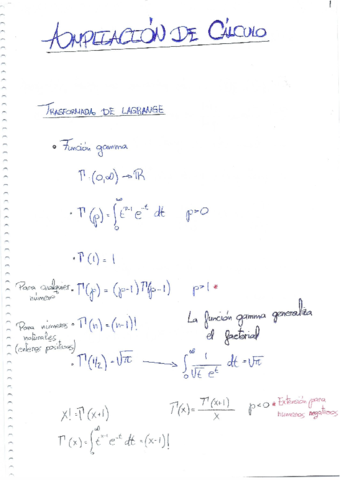 1
AMPLIACIÓN DE CÁLCULO
TRASFORMADA DE LAGRANGE
• Función gamma
Γ: (0,∞) → ℝ
• Γ(p) = ∫₀^∞ t^(p-1) e^(-t) dt p>0
• Γ(1) = 1
Para cualquier número • Γ(p) = (p-1) Γ(p-1) p>1 •
Para números naturales (enteros positivos) • Γ(n) = (n-1)!
La función gamma generaliza
el factorial
• Γ(1/2) = √π → ∫₀^∞ 1/(√t e^t) dt = √π
X! = Γ(x+1)
Γ(x) = Γ(x+1)/x p<0 • Extensión para números negativos
Γ(x) = ∫₀^∞ t^(x-1) e^(-t) dt = (x-1)!